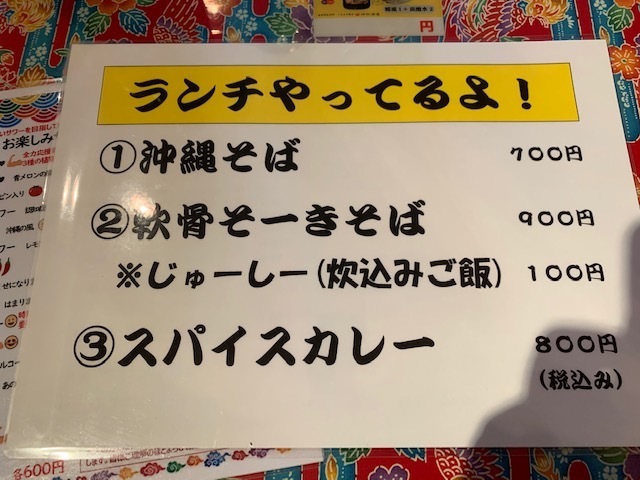 円
ランチやってるよ！
①沖縄そば 700円
②軟骨そーきそば 900円
※じゅーしー(炊込みご飯) 100円
③スパイスカレー 800円
(税込み)
お楽しみ
ピン入り
沖縄の風
せになり
はまり
各600円